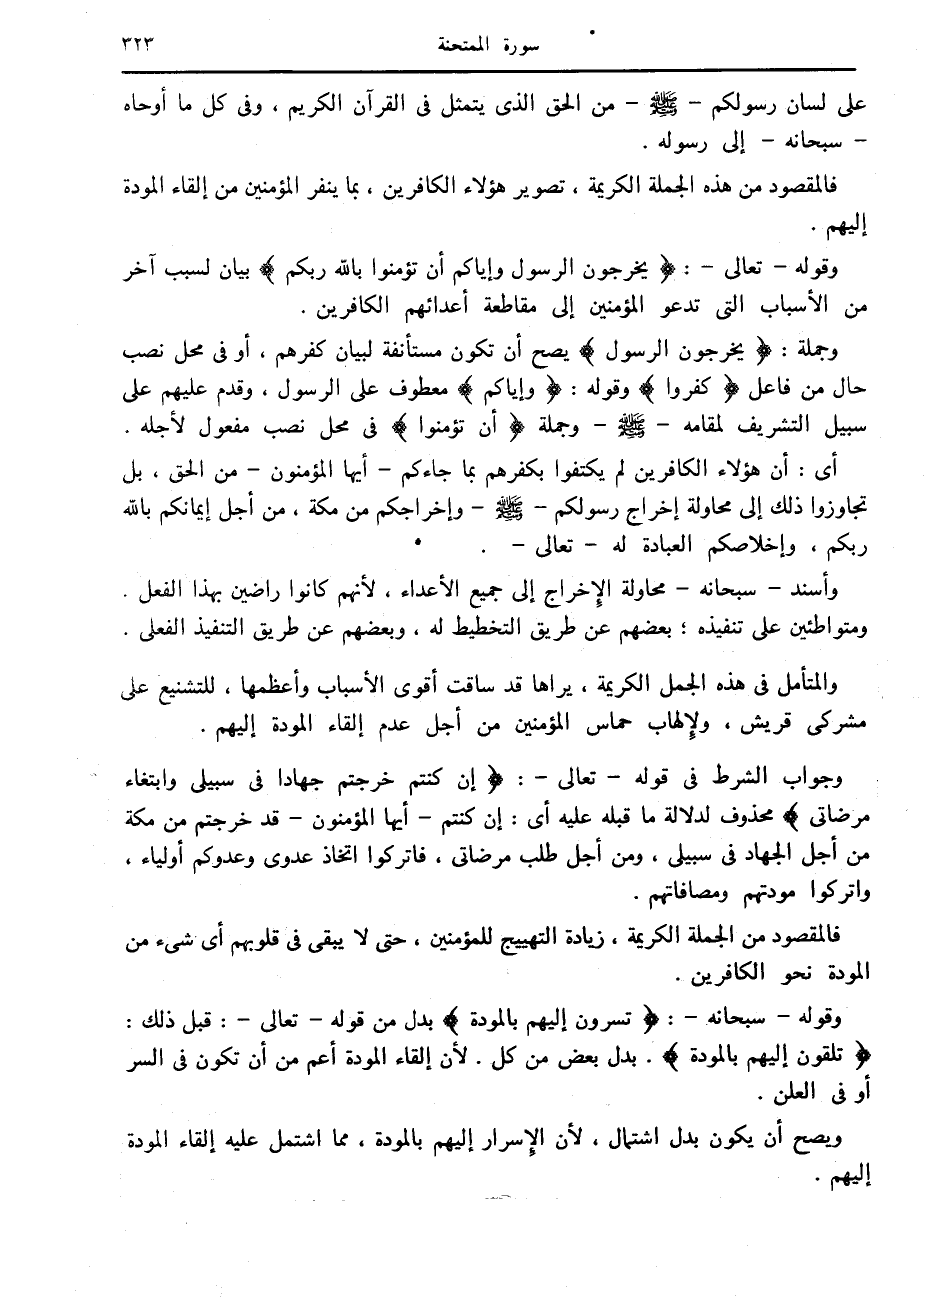 سورة الممتحنة ٣٢٣
على لسان رسولكم – ﷺ – من الحق الذى يتمثل فى القرآن الكريم ، وفى كل ما أوحاه
– سبحانه – إلى رسوله .
فالمقصود من هذه الجملة الكريمة ، تصوير هؤلاء الكافرين ، بما ينفر المؤمنين من إلقاء المودة
إليهم .
وقوله – تعالى – : ﴿ يخرجون الرسول وإياكم أن تؤمنوا بالله ربكم ﴾ بيان لسبب آخر
من الأسباب التى تدعو المؤمنين إلى مقاطعة أعدائهم الكافرين .
وجملة : ﴿ يخرجون الرسول ﴾ يصح أن تكون مستأنفة لبيان كفرهم ، أو فى محل نصب
حال من فاعل ﴿ كفروا ﴾ وقوله : ﴿ وإياكم ﴾ معطوف على الرسول ، وقدم عليهم على
سبيل التشريف لمقامه – ﷺ – وجملة ﴿ أن تؤمنوا ﴾ فى محل نصب مفعول لأجله .
أى : أن هؤلاء الكافرين لم يكتفوا بكفرهم بما جاءكم – أيها المؤمنون – من الحق ، بل
تجاوزوا ذلك إلى محاولة إخراج رسولكم – ﷺ – وإخراجكم من مكة ، من أجل إيمانكم بالله
ربكم ، وإخلاصكم العبادة له – تعالى – .
وأسند – سبحانه – محاولة الإخراج إلى جميع الأعداء ، لأنهم كانوا راضين بهذا الفعل .
ومتواطئين على تنفيذه ؛ بعضهم عن طريق التخطيط له ، وبعضهم عن طريق التنفيذ الفعلى .
والمتأمل فى هذه الجمل الكريمة ، يراها قد ساقت أقوى الأسباب وأعظمها ، للتشنيع على
مشركى قريش ، ولإلهاب حماس المؤمنين من أجل عدم إلقاء المودة إليهم .
وجواب الشرط فى قوله – تعالى – : ﴿ إن كنتم خرجتم جهادا فى سبيلى وابتغاء
مرضاتى ﴾ محذوف لدلالة ما قبله عليه أى : إن كنتم – أيها المؤمنون – قد خرجتم من مكة
من أجل الجهاد فى سبيلى ، ومن أجل طلب مرضاتى ، فاتركوا اتخاذ عدوى وعدوكم أولياء ،
واتركوا مودتهم ومصافاتهم .
فالمقصود من الجملة الكريمة ، زيادة التهييج للمؤمنين ، حتى لا يبقى فى قلوبهم أى شىء من
المودة نحو الكافرين .
وقوله – سبحانه – : ﴿ تسرون إليهم بالمودة ﴾ بدل من قوله – تعالى – : قبل ذلك :
﴿ تلقون إليهم بالمودة ﴾ . بدل بعض من كل . لأن إلقاء المودة أعم من أن تكون فى السر
أو فى العلن .
ويصح أن يكون بدل اشتمال ، لأن الإسرار إليهم بالمودة ، مما اشتمل عليه إلقاء المودة
إليهم .